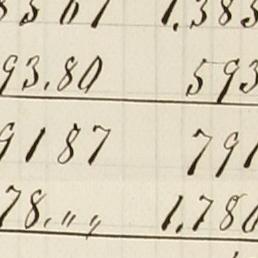 8301 1.383
93.80 593
9187 791
78.„„ 1.780